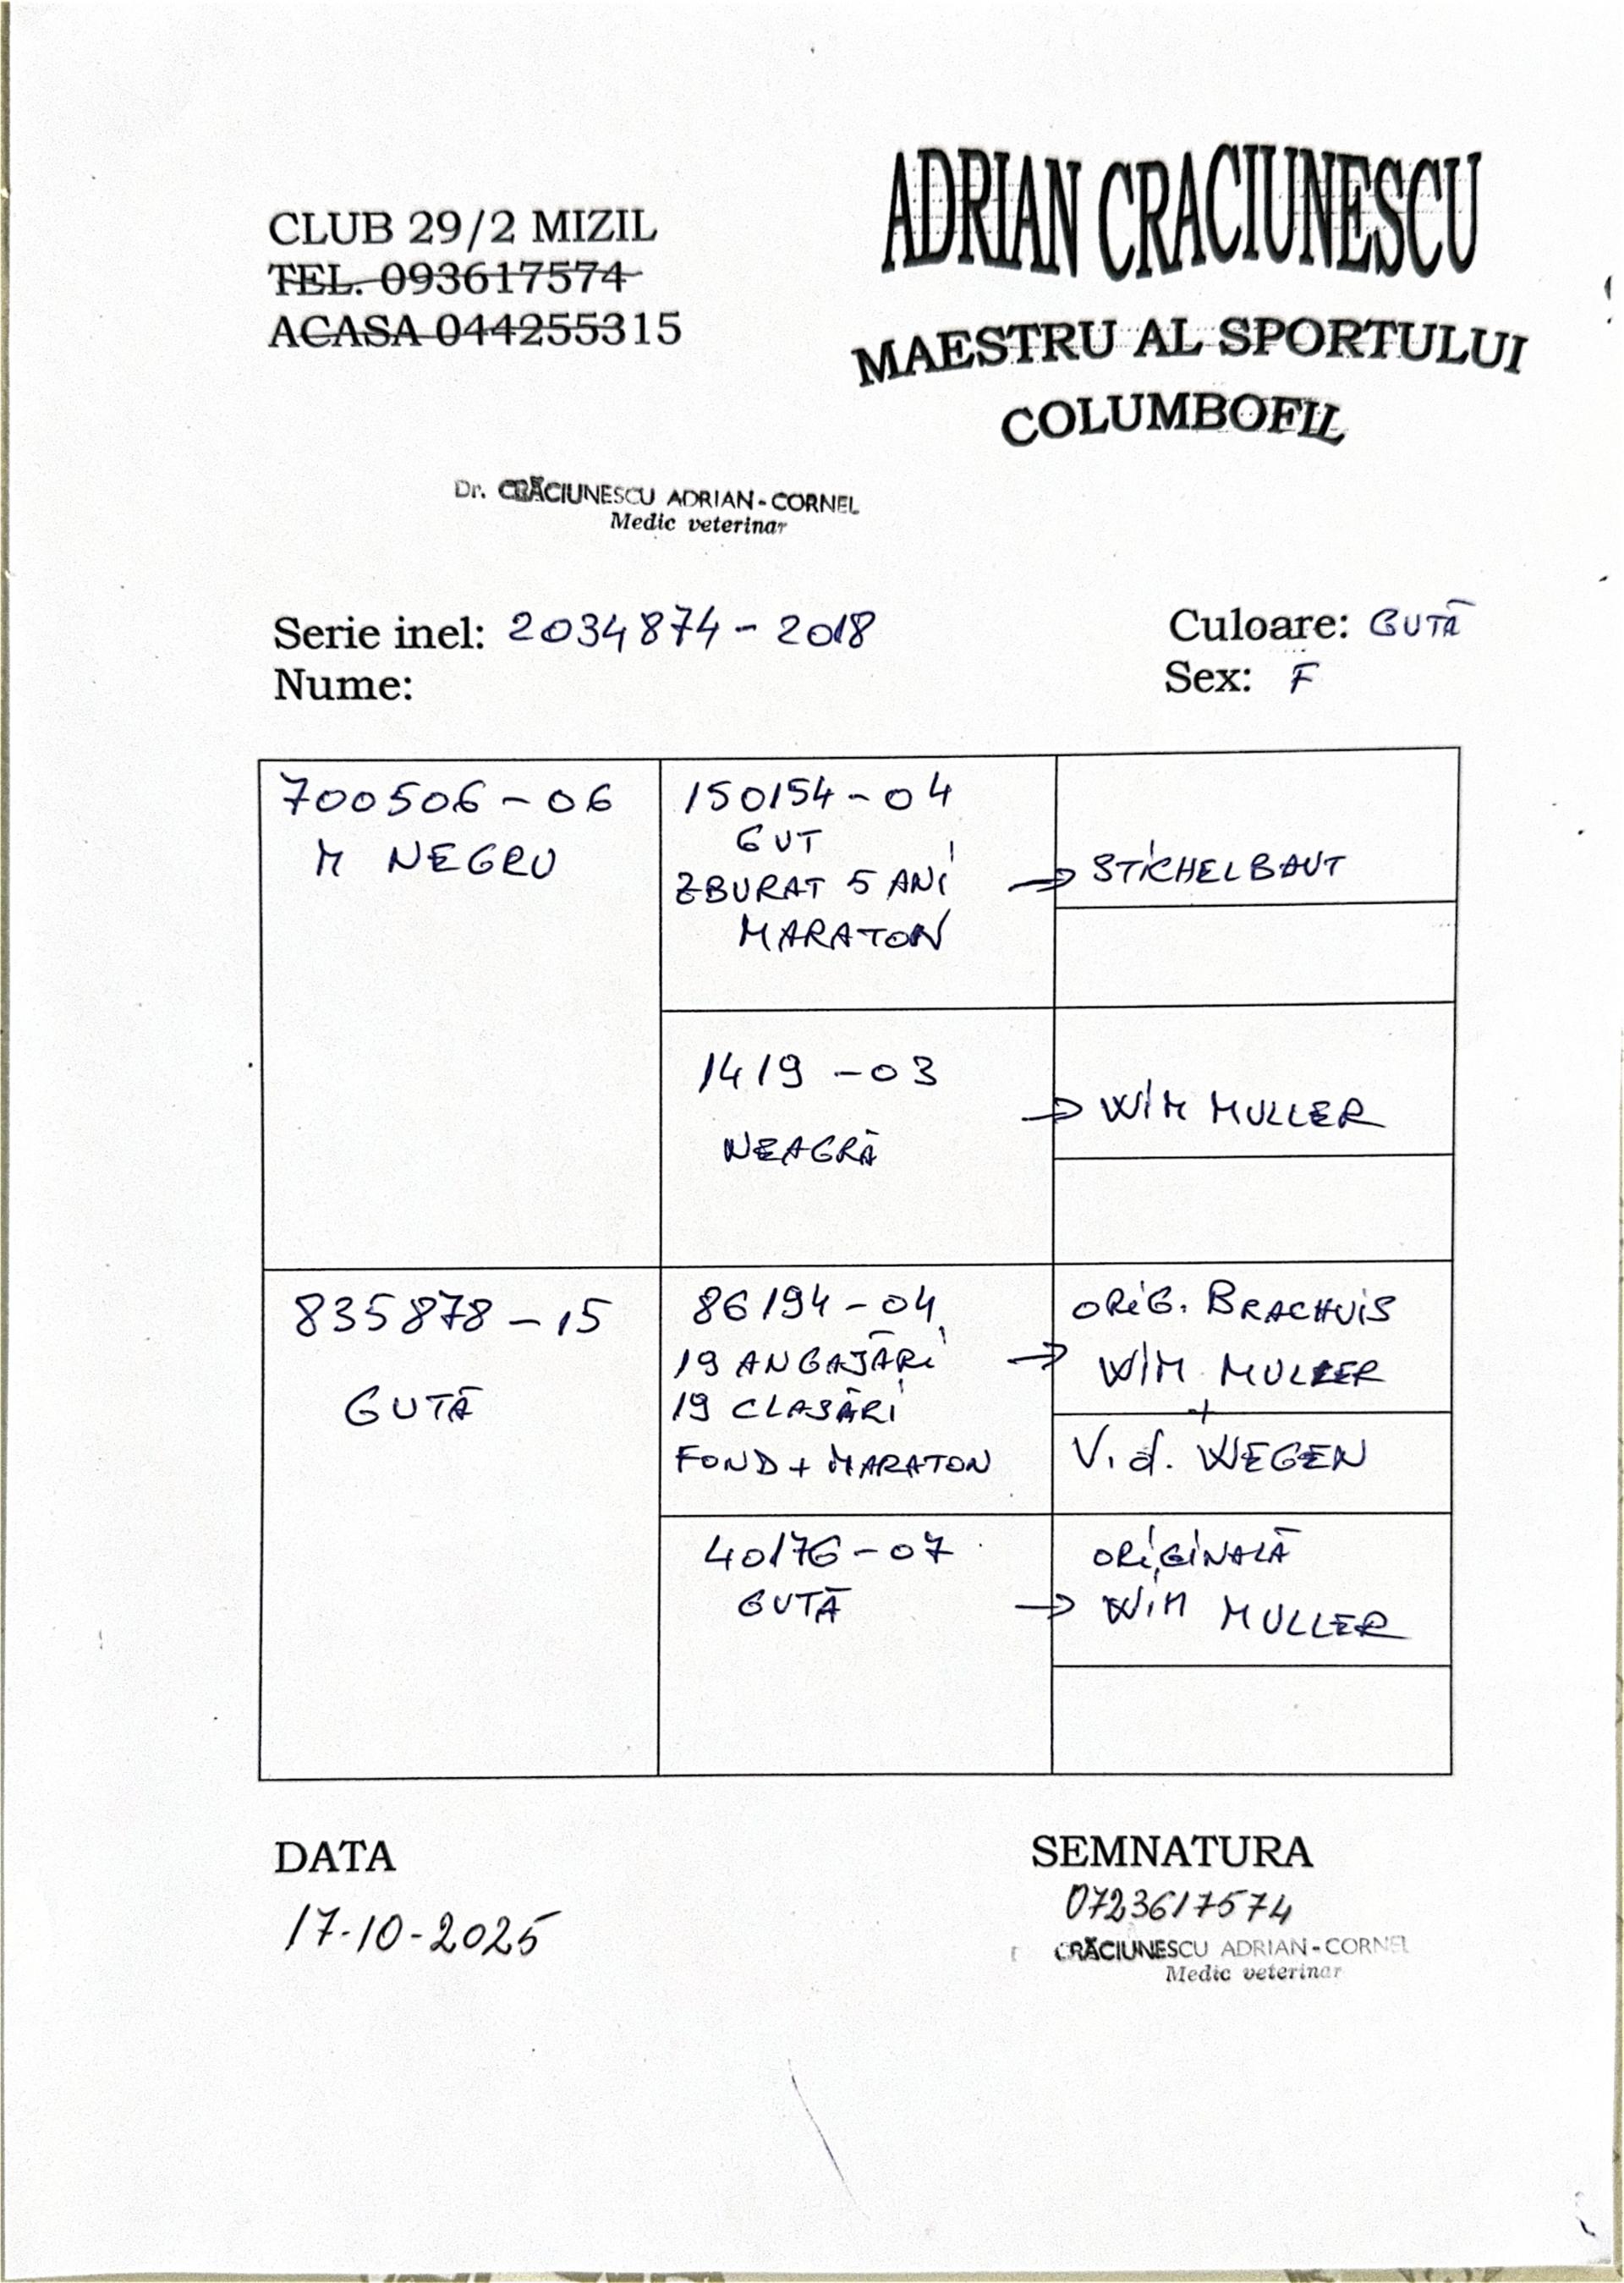 ADRIAN CRACIUNESCU
MAESTRU AL SPORTULUI
COLUMBOFIL
CLUB 29/2 MIZIL
TEL. 093617574
ACASA 044255315
Dr. CRĂCIUNESCU ADRIAN-CORNEL
Medic veterinar
Serie inel: 2034874-2018
Culoare: GUTĂ
Nume:
Sex: F
700506-06
M NEGRU
150154-04
GUT
ZBURAT 5 ANI
MARATON
→ STICHELBAUT
1419-03
NEAGRĂ
→ WIM MULLER
835878-15
GUTĂ
86194-04
19 ANGAJĂRI
19 CLASĂRI
FOND + MARATON
ORIG. BRACHUIS
→ WIM MULLER
+
V.d. WEGEN
40176-07
GUTĂ
ORIGINALĂ
→ WIM MULLER
DATA
17-10-2025
SEMNATURA
0723617574
CRĂCIUNESCU ADRIAN-CORNEL
Medic veterinar